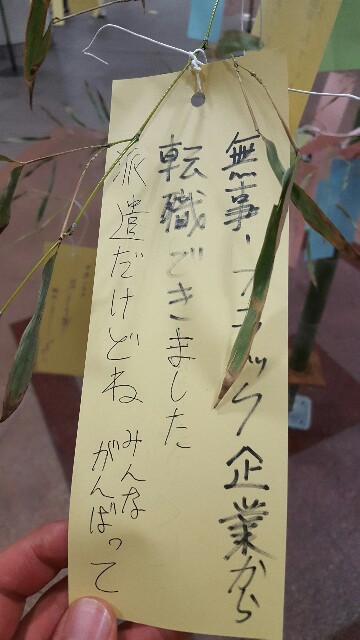 無事、ブラック企業から
転職できました
派遣だけどね
みんな
がんばって